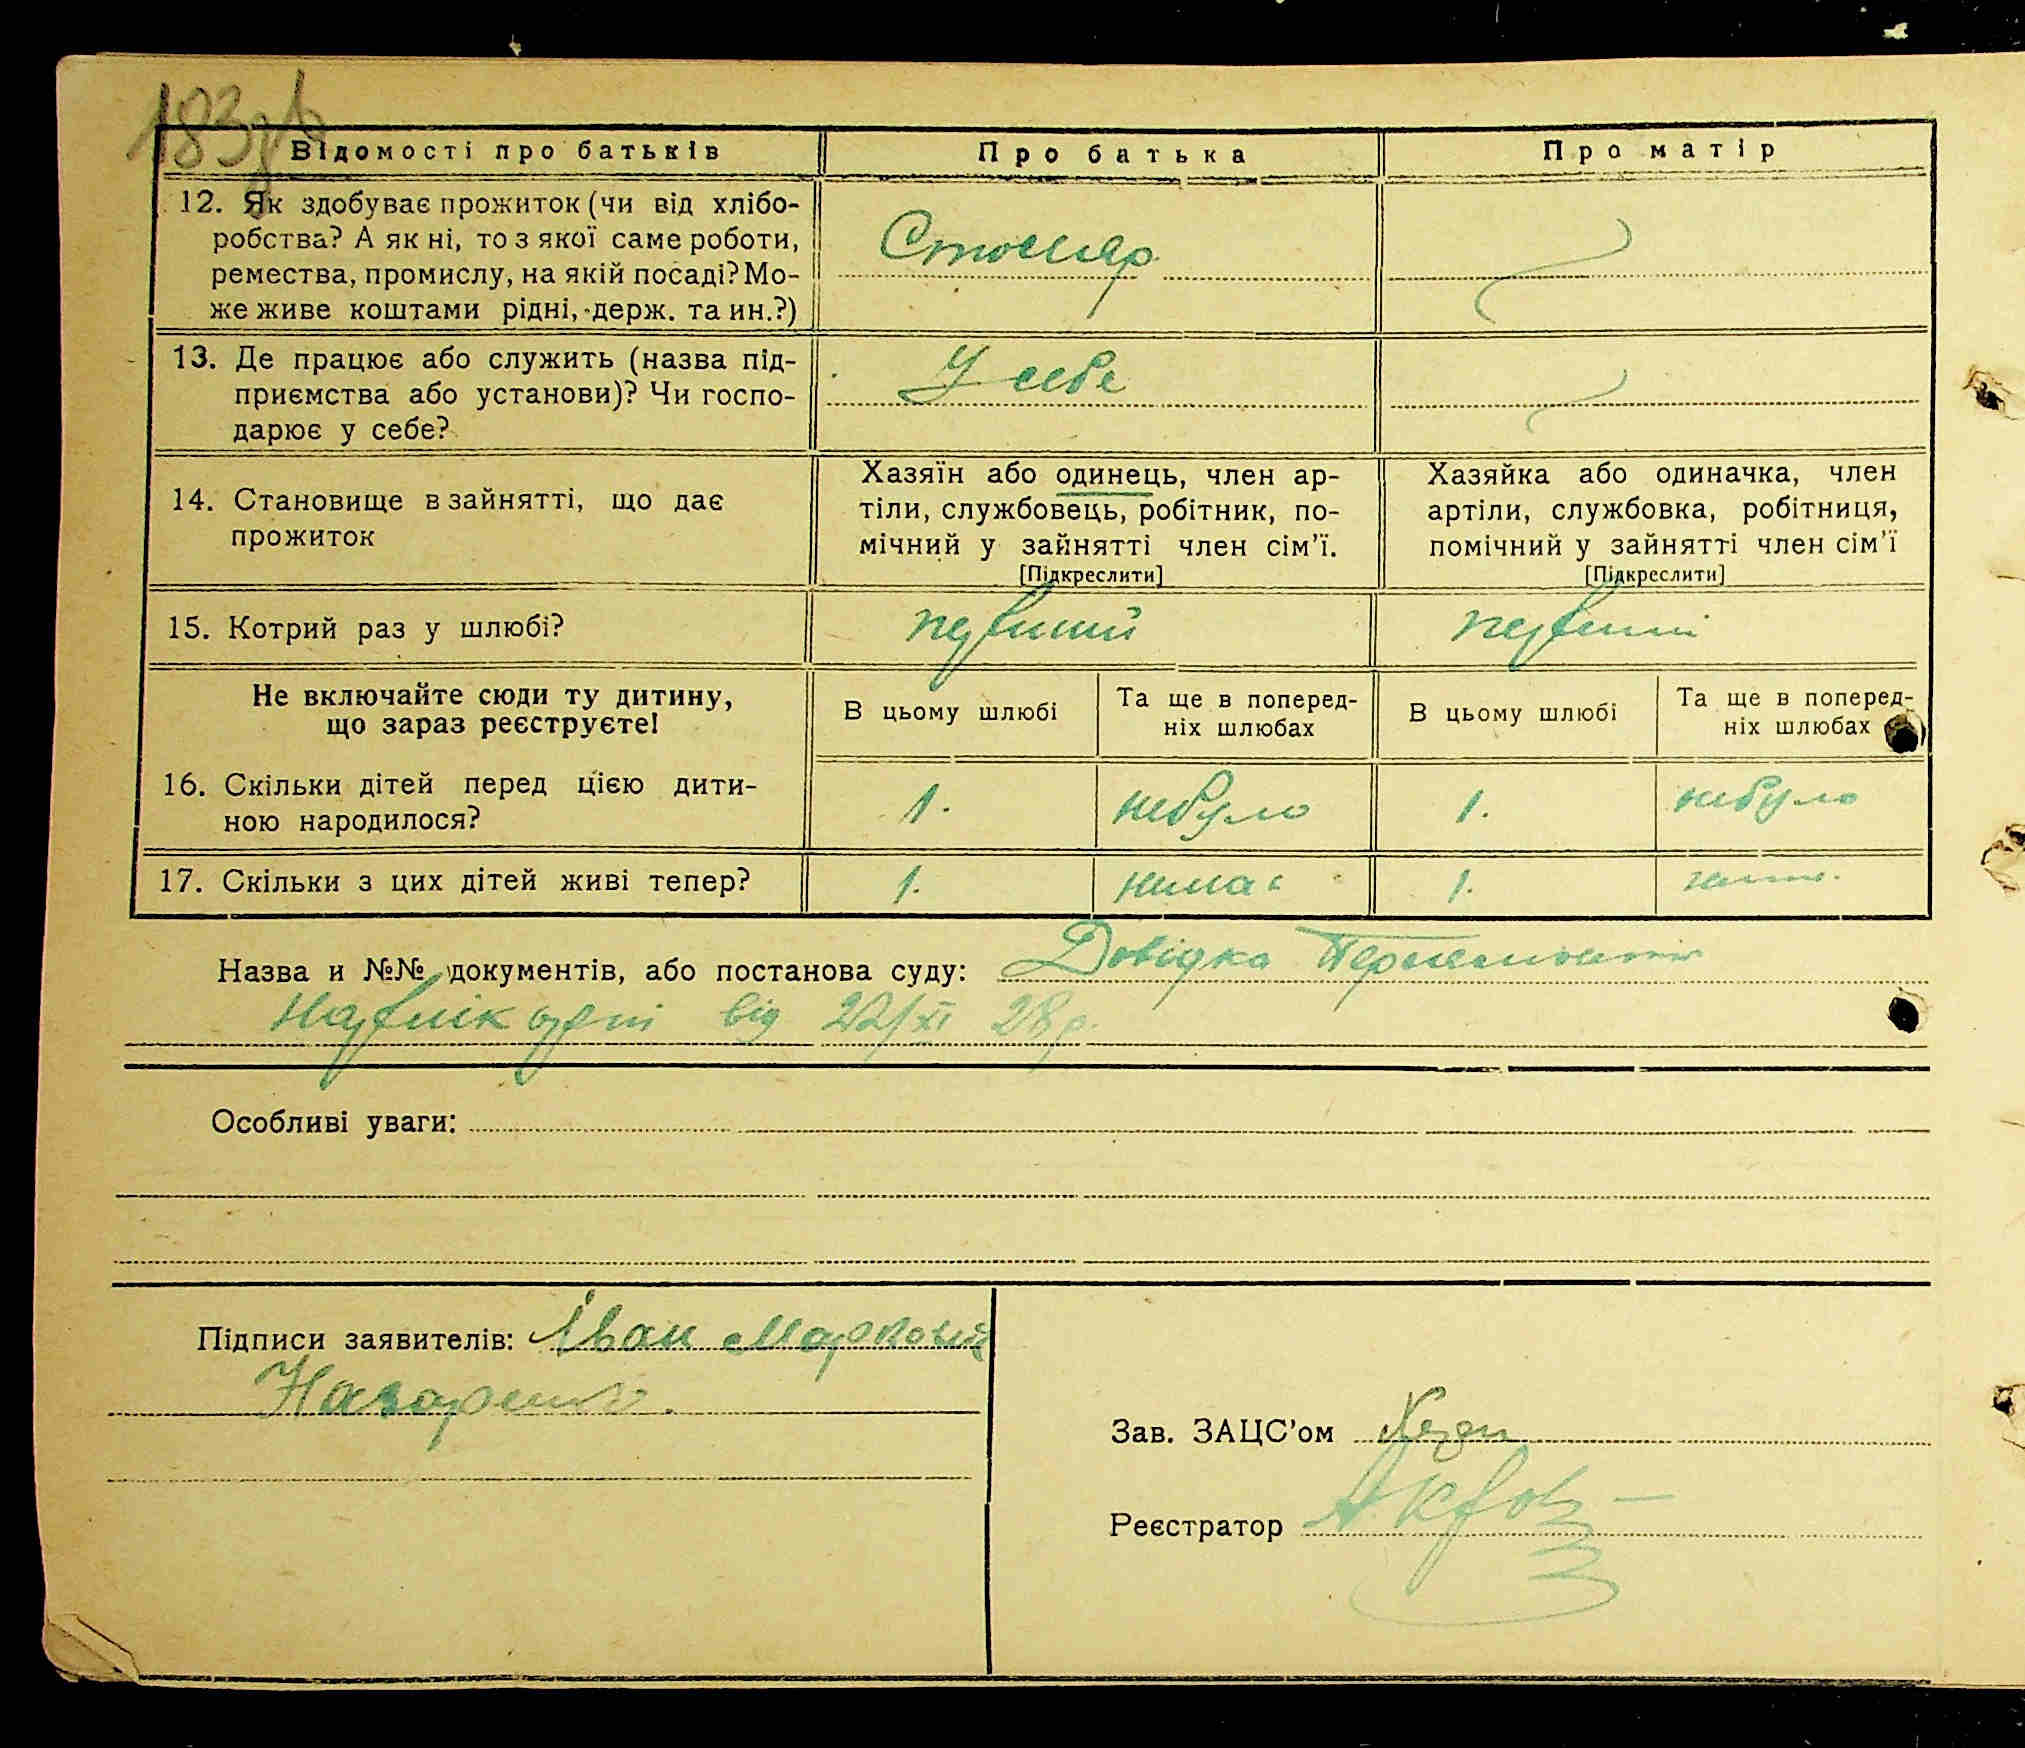 183зв
Відомості про батьків
Про батька
Про матір
12. Як здобуває прожиток (чи від хлібо-
робства? А як ні, то з якої саме роботи,
ремества, промислу, на якій посаді? Мо-
же живе коштами рідні, держ. та ин.?)
Столяр
13. Де працює або служить (назва під-
приємства або установи)? Чи госпо-
дарює у себе?
У себе
14. Становище в зайнятті, що дає
прожиток
Хазяїн або одинець, член ар-
тіли, службовець, робітник, по-
мічний у зайнятті член сім'ї.
[Підкреслити]
Хазяйка або одиначка, член
артіли, службовка, робітниця,
помічний у зайнятті член сім'ї
[Підкреслити]
15. Котрий раз у шлюбі?
первший
первший
Не включайте сюди ту дитину,
що зараз реєструєте!
В цьому шлюбі
Та ще в поперед-
ніх шлюбах
В цьому шлюбі
Та ще в поперед-
ніх шлюбах
16. Скільки дітей перед цією дити-
ною народилося?
1.
небуло
1.
небуло
17. Скільки з цих дітей живі тепер?
1.
нимає
1.
Назва и №№ документів, або постанова суду: Довідка
від 22/XI 28 р.
Особливі уваги:
Підписи заявителів: Іван Маркович
Назаренко.
Зав. ЗАЦС'ом
Реєстратор